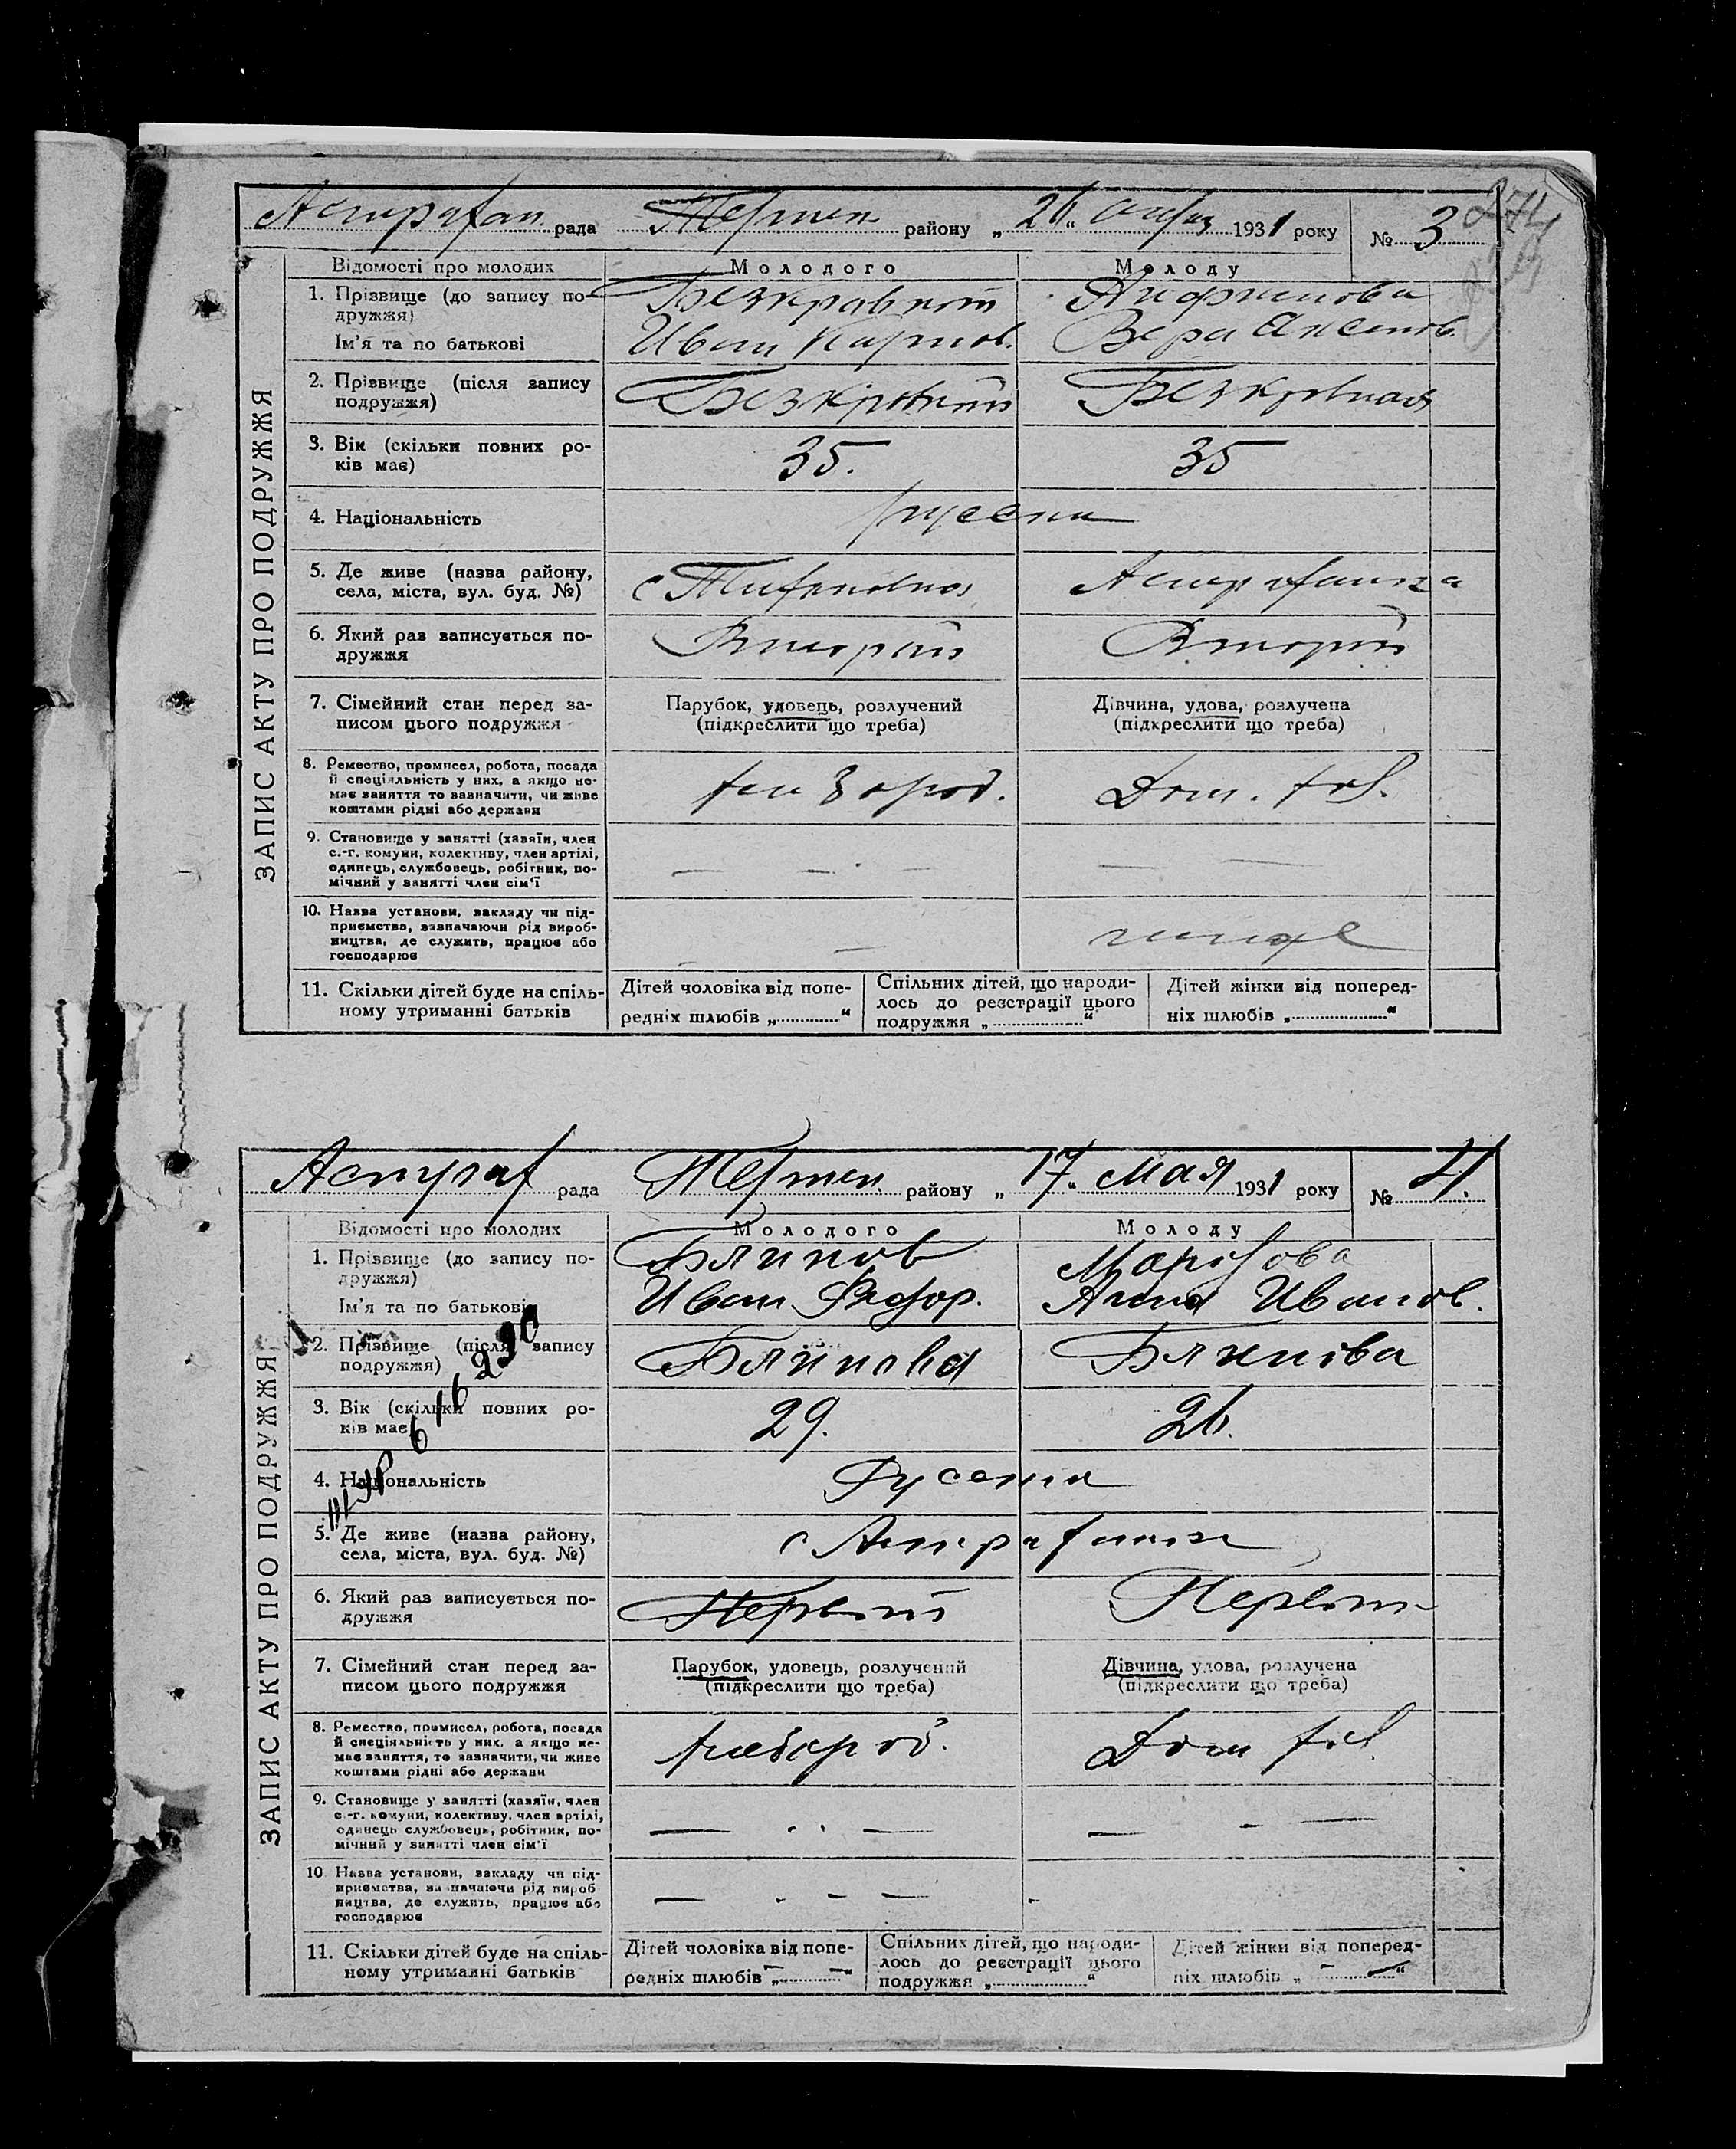 Астрахан рада Терпен району „26“ 1931 року № 3
274
ЗАПИС АКТУ ПРО ПОДРУЖЖЯ
Відомості про молодих Молодого Молоду
1. Прізвище (до запису подружжя) Безкравний
Ім'я та по батькові Иван Вера
2. Прізвище (після запису подружжя) Безкровний Безкровная
3. Вік (скільки повних років має) 35. 35
4. Національність русски
5. Де живе (назва району, села, міста, вул. буд. №) с Астраханка
6. Який раз записується подружжя Вторый Вторый
7. Сімейний стан перед записом цього подружжя Парубок, удовець, розлучений (підкреслити що треба) Дівчина, удова, розлучена (підкреслити що треба)
8. Ремество, промисел, робота, посада й спеціяльність у них, а якщо немає заняття то зазначити, чи живе коштами рідні або держави Дом. хоз.
9. Становище у занятті (хазяїн, член с.-г. комуни, колективу, член артілі, одинець, службовець, робітник, помічний у занятті член сім'ї — - — —
10. Назва установи, закладу чи підприємства, зазначаючи рід виробництва, де служить, працює або господарює —
11. Скільки дітей буде на спільному утриманні батьків Дітей чоловіка від попередніх шлюбів „ “ Спільних дітей, що народилось до реєстрації цього подружжя „ “ Дітей жінки від попередніх шлюбів „ “
Астрах рада Терпен району „17“ мая 1931 року № 4.
ЗАПИС АКТУ ПРО ПОДРУЖЖЯ
Відомості про молодих Молодого Молоду
1. Прізвище (до запису подружжя) Блинов Марозова
Ім'я та по батькові Иван Федор. Анна Иванов.
2. Прізвище (після запису подружжя) Блинова Блинова
3. Вік (скільки повних років має) 29. 26.
4. Національність Русски
5. Де живе (назва району, села, міста, вул. буд. №) с Астраханка
6. Який раз записується подружжя Первый Первый
7. Сімейний стан перед записом цього подружжя Парубок, удовець, розлучений (підкреслити що треба) Дівчина, удова, розлучена (підкреслити що треба)
8. Ремество, промисел, робота, посада й спеціяльність у них, а якщо немає заняття, то зазначити, чи живе коштами рідні або держави хлебороб. Дом хоз.
9. Становище у занятті (хазяїн, член с.-г. комуни, колективу, член артілі, одинець службовець, робітник, помічний у занятті член сім'ї — — — - —
10 Назва установи, закладу чи підприємства, зазначаючи рід виробництва, де служить, працює або господарює — - - — -
11. Скільки дітей буде на спільному утриманні батьків Дітей чоловіка від попередніх шлюбів „—“ Спільних дітей, що народилось до реєстрації цього подружжя „ “ Дітей жінки від попередніх шлюбів „—“